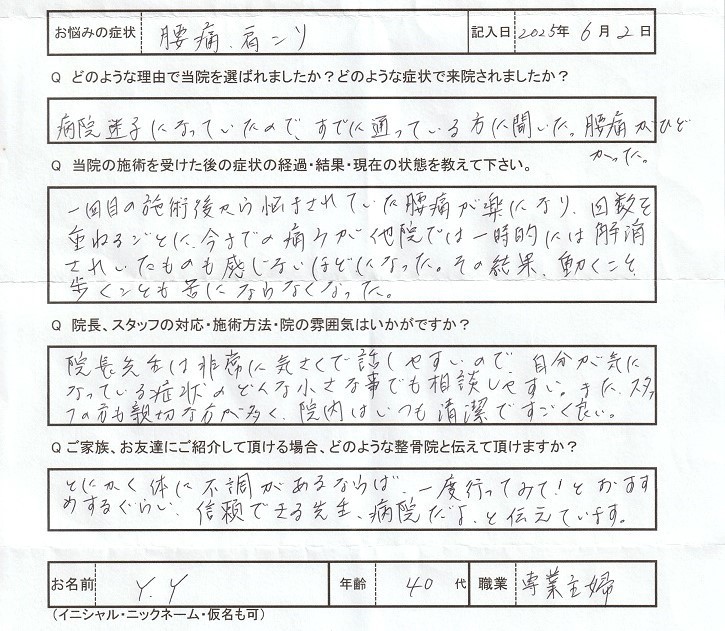 お悩みの症状 腰痛、肩コリ 記入日 2025年 6月 2日
Q どのような理由で当院を選ばれましたか?どのような症状で来院されましたか?
病院迷子になっていたので、すでに通っている方に聞いた。腰痛がひど
かった。
Q 当院の施術を受けた後の症状の経過・結果・現在の状態を教えて下さい。
一回目の施術後から悩まされていた腰痛が楽になり、回数を
重ねるごとに、今までの痛みが他院では一時的には解消
されいたものも感じないほどになった。その結果、動くこと、
歩くことも苦にならなくなった。
Q 院長、スタッフの対応・施術方法・院の雰囲気はいかがですか?
院長先生は非常に気さくで話しやすいので、自分が気に
なっている症状のどんな小さな事でも相談しやすい。また、スタッ
フの方も親切な方が多く、院内はいつも清潔ですごく良い。
Q ご家族、お友達にご紹介して頂ける場合、どのような整骨院と伝えて頂けますか?
とにかく体に不調があるならば、一度行ってみて!とおすす
めするぐらい、信頼できる先生、病院だよ、と伝えています。
お名前 Y.Y 年齢 40代 職業 専業主婦
(イニシャル・ニックネーム・仮名も可)